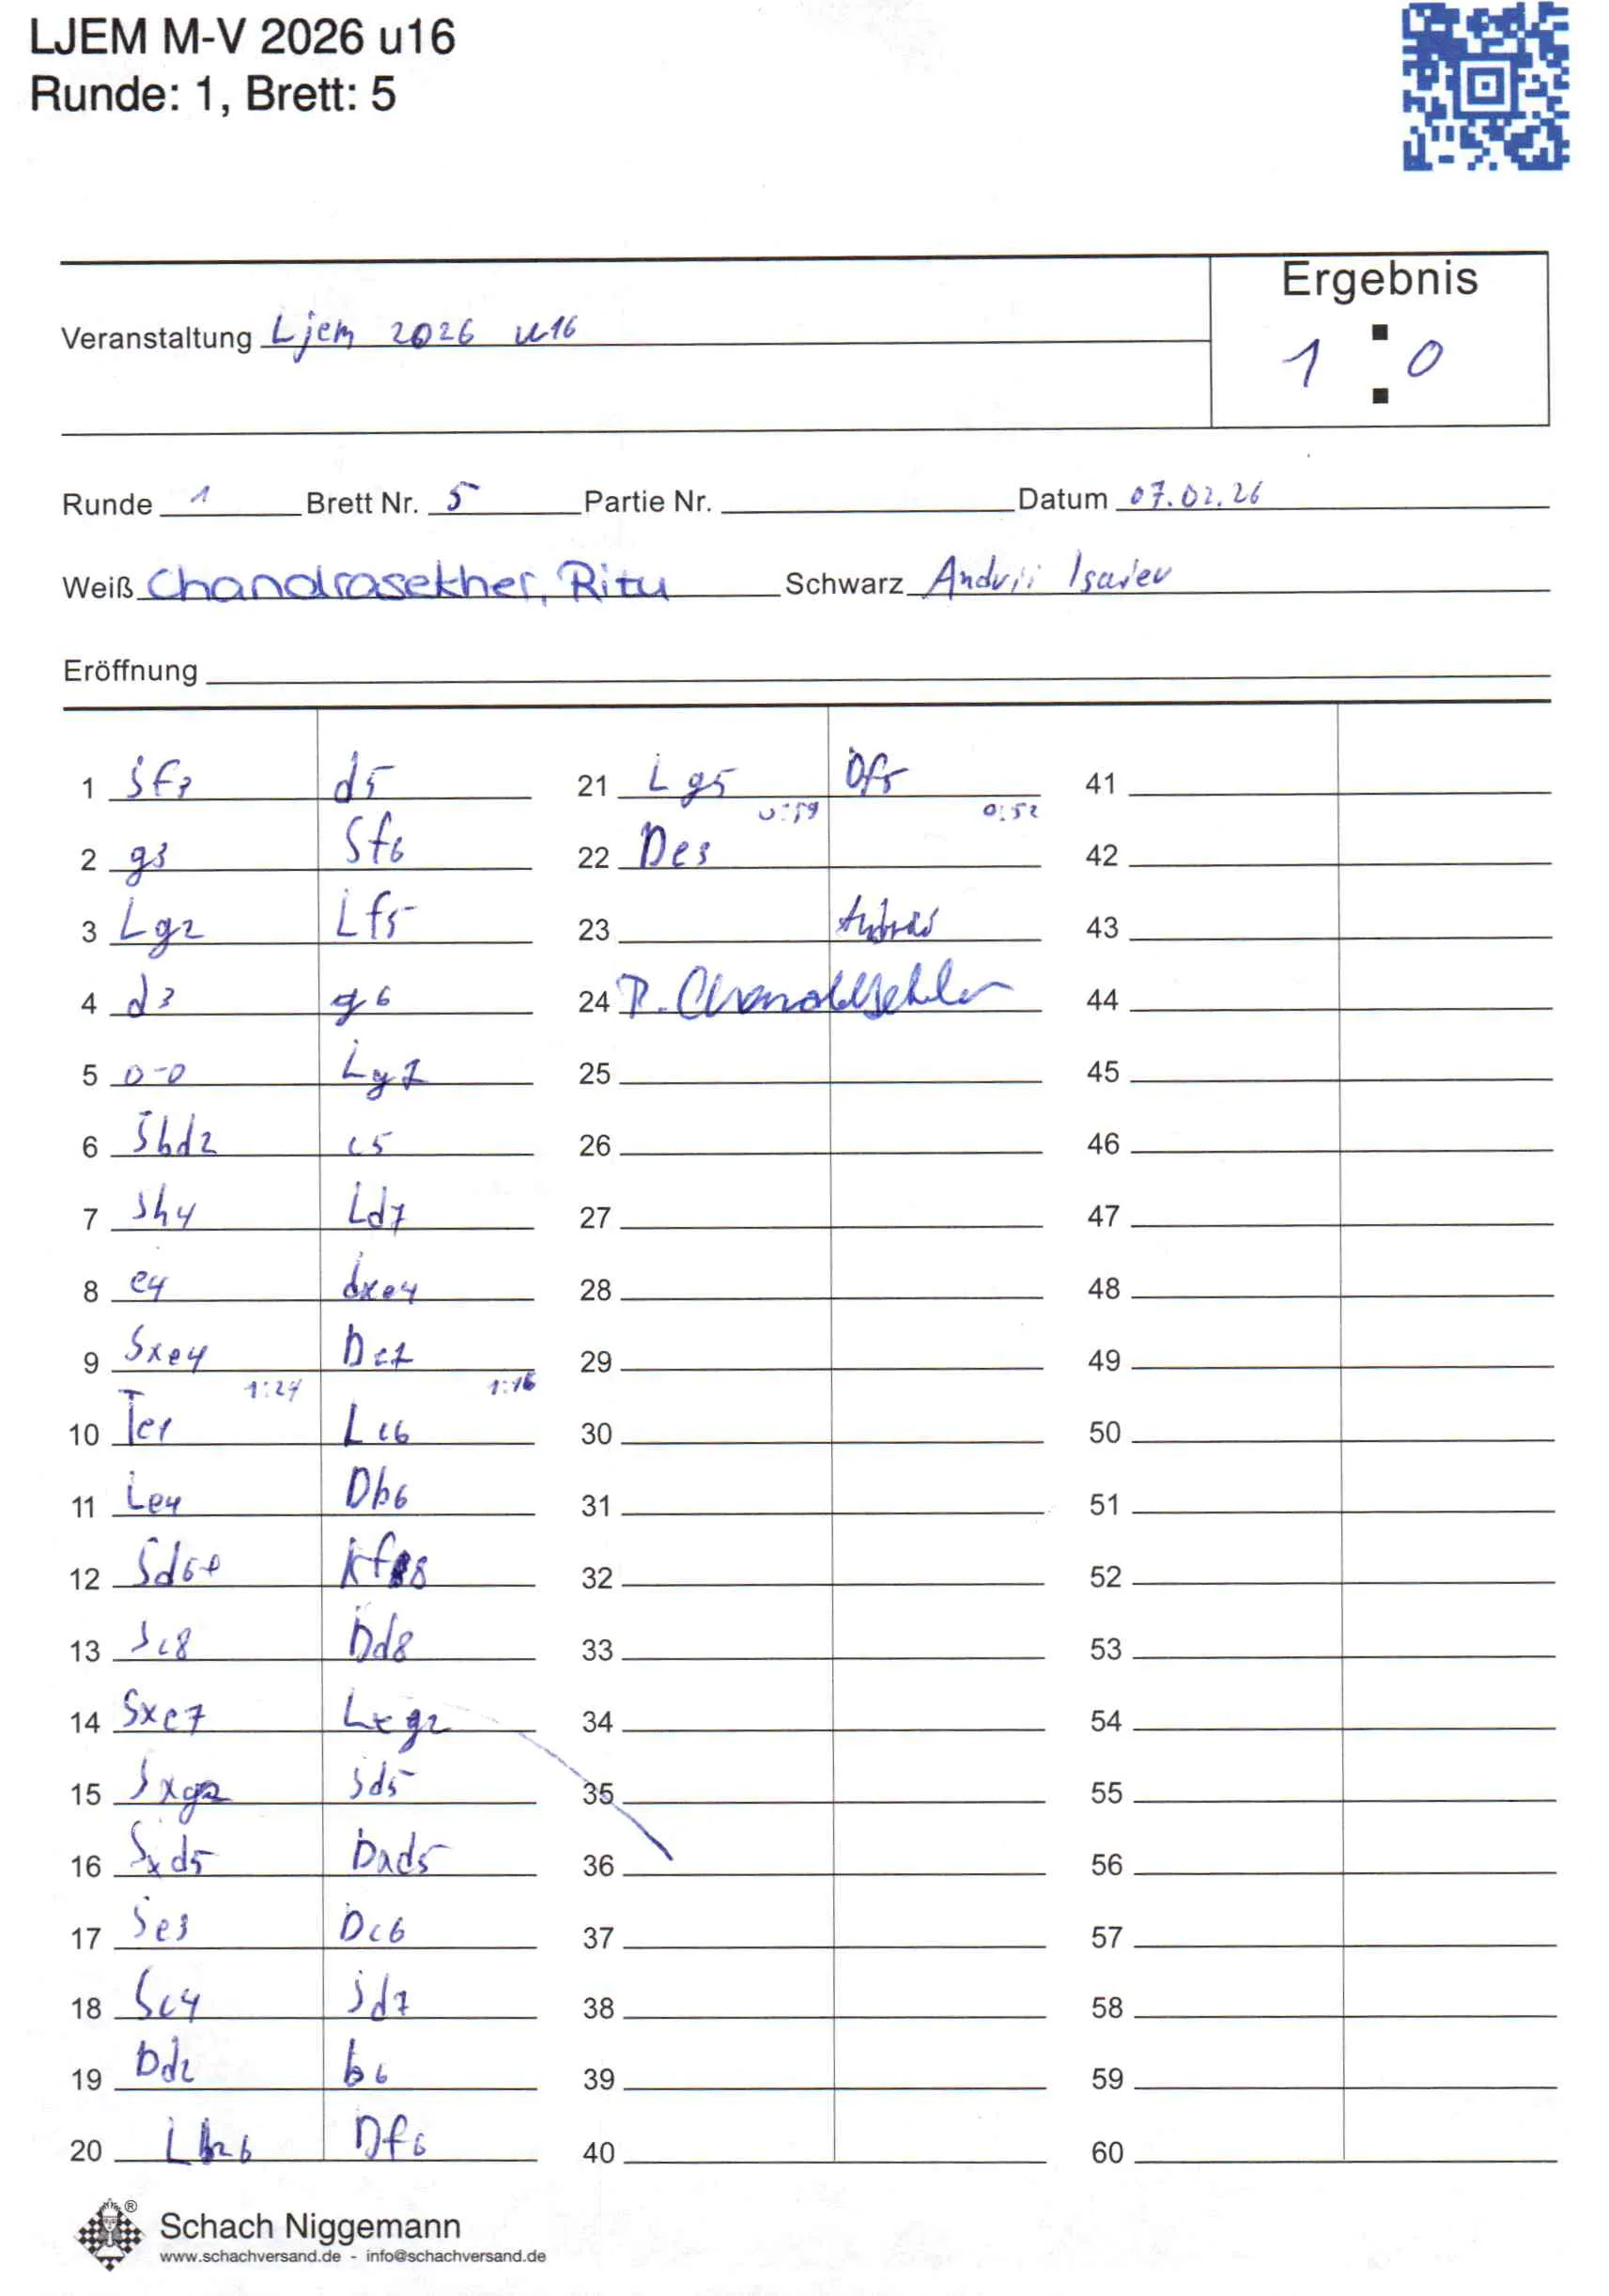 LJEM M-V 2026 u16
Runde: 1, Brett: 5
Ergebnis
Veranstaltung Ljem 2026 u16
1 : 0
Runde 1 Brett Nr. 5 Partie Nr. Datum 07.02.26
Weiß Chandrasekher, Ritu Schwarz Andrii Isaiev
Eröffnung
1 Sf3 d5 21 Lg5 Df5 41
0:59 0:52
2 g3 Sf6 22 De3 42
3 Lg2 Lf5 23 43
4 d3 g6 24 44
5 0-0 Lg7 25 45
6 Sbd2 c5 26 46
7 Sh4 Ld7 27 47
8 e4 dxe4 28 48
9 Sxe4 Dc7 29 49
1:24 1:16
10 Te1 Lc6 30 50
11 Le4 Db6 31 51
12 Sd6+ Kf8 32 52
13 Sc8 Dd8 33 53
14 Sxe7 Lxg2 34 54
15 Sxg2 Sd5 35 55
16 Sxd5 Dxd5 36 56
17 Se3 Dc6 37 57
18 Sc4 Sd7 38 58
19 Dd2 b6 39 59
20 Lh6 Df6 40 60
®
Schach Niggemann
www.schachversand.de - info@schachversand.de